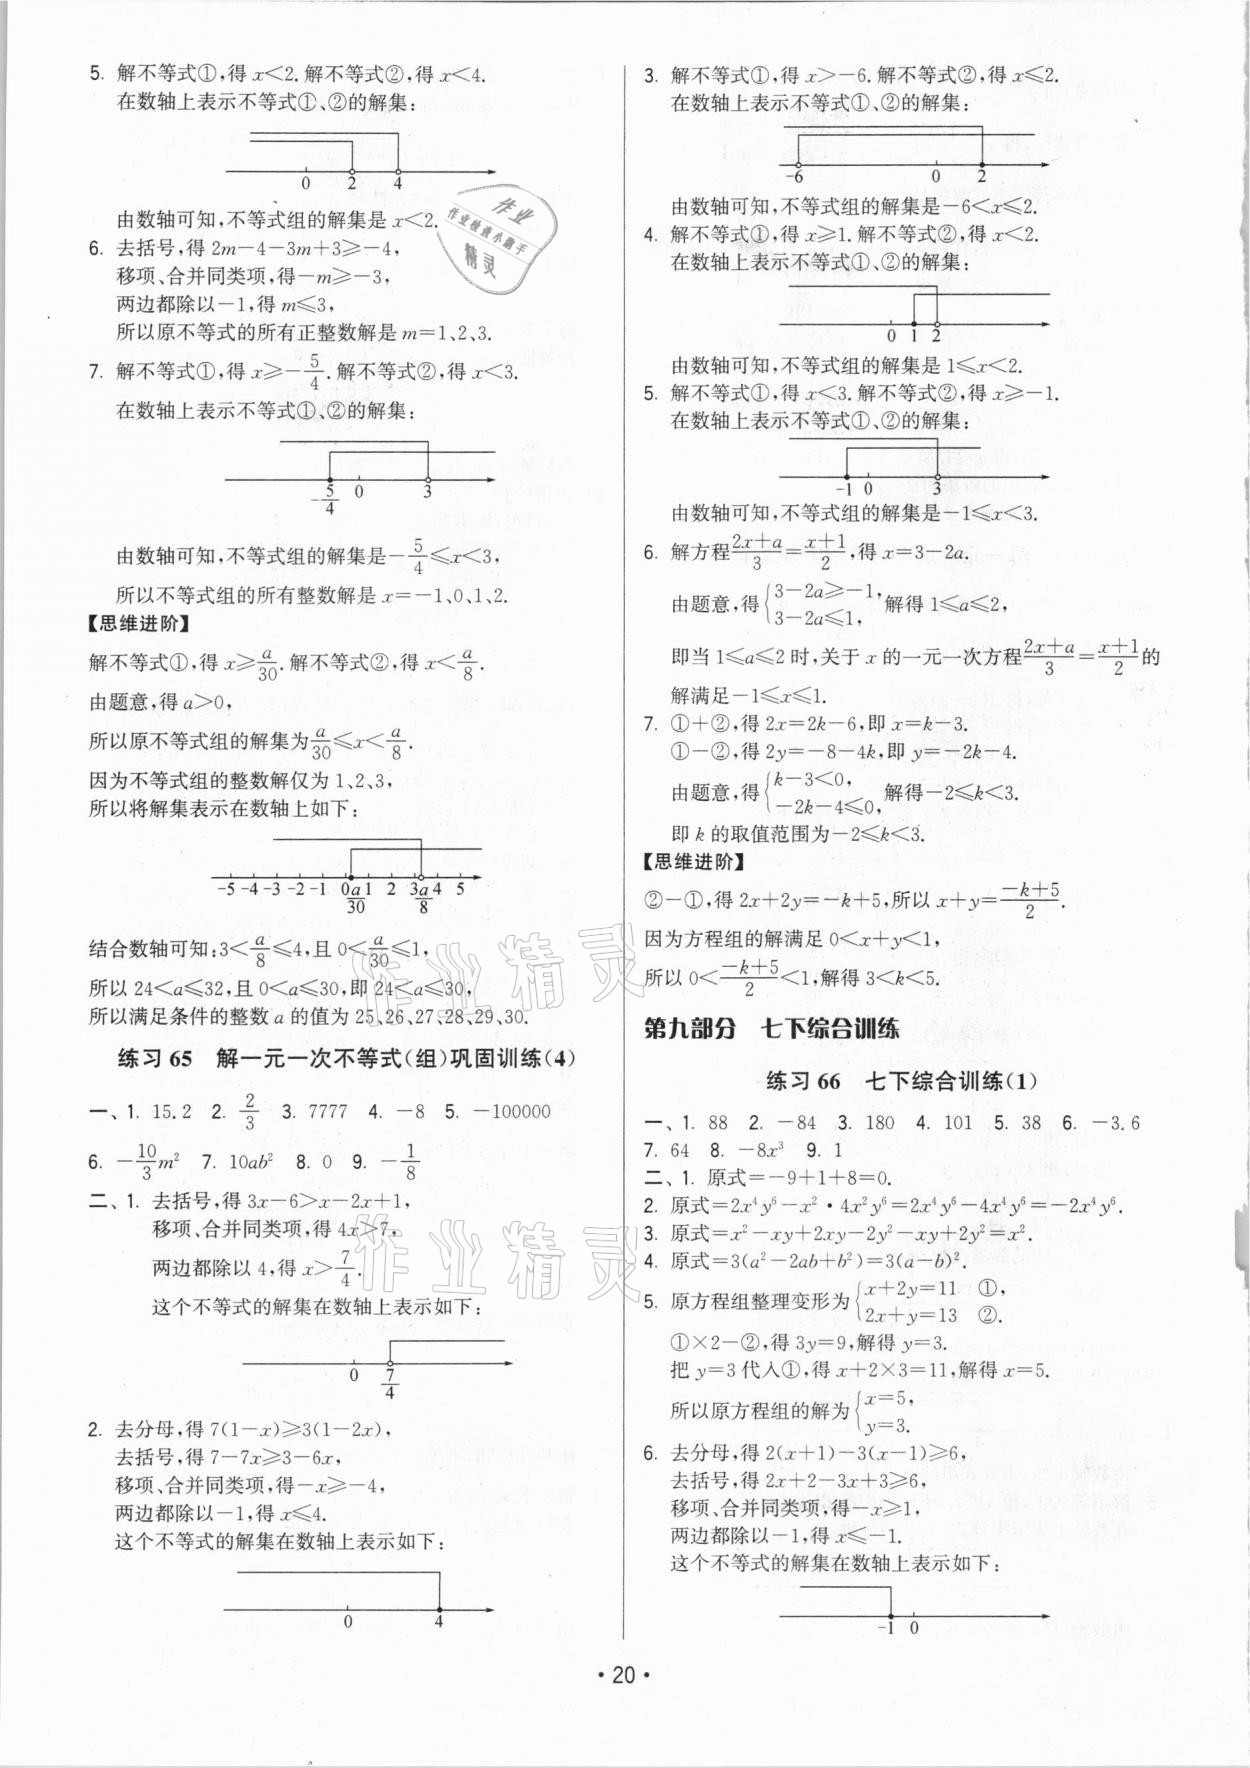 5. 解不等式①,得 x<2. 解不等式②,得 x<4.
在数轴上表示不等式①、②的解集:
0 2 4
由数轴可知,不等式组的解集是 x<2.
6. 去括号,得 2m-4-3m+3≥-4,
移项、合并同类项,得-m≥-3,
两边都除以-1,得 m≤3,
所以原不等式的所有正整数解是 m=1、2、3.
7. 解不等式①,得 x≥-5/4. 解不等式②,得 x<3.
在数轴上表示不等式①、②的解集:
-5/4 0 3
由数轴可知,不等式组的解集是-5/4≤x<3,
所以不等式组的所有整数解是 x=-1、0、1、2.
【思维进阶】
解不等式①,得 x≥a/30. 解不等式②,得 x<a/8.
由题意,得 a>0,
所以原不等式组的解集为a/30≤x<a/8.
因为不等式组的整数解仅为 1、2、3,
所以将解集表示在数轴上如下:
-5 -4 -3 -2 -1 0 a/30 1 2 3 a/8 4 5
结合数轴可知:3<a/8≤4,且 0<a/30≤1,
所以 24<a≤32,且 0<a≤30,即 24<a≤30,
所以满足条件的整数 a 的值为 25、26、27、28、29、30.
练习 65 解一元一次不等式(组)巩固训练(4)
一、1. 15.2 2. 2/3 3. 7777 4. -8 5. -100000
6. -10/3m² 7. 10ab² 8. 0 9. -1/8
二、1. 去括号,得 3x-6>x-2x+1,
移项、合并同类项,得 4x>7,
两边都除以 4,得 x>7/4.
这个不等式的解集在数轴上表示如下:
0 7/4
2. 去分母,得 7(1-x)≥3(1-2x),
去括号,得 7-7x≥3-6x,
移项、合并同类项,得-x≥-4,
两边都除以-1,得 x≤4.
这个不等式的解集在数轴上表示如下:
0 4
3. 解不等式①,得 x>-6. 解不等式②,得 x≤2.
在数轴上表示不等式①、②的解集:
-6 0 2
由数轴可知,不等式组的解集是-6<x≤2.
4. 解不等式①,得 x≥1. 解不等式②,得 x<2.
在数轴上表示不等式①、②的解集:
0 1 2
由数轴可知,不等式组的解集是 1≤x<2.
5. 解不等式①,得 x<3. 解不等式②,得 x≥-1.
在数轴上表示不等式①、②的解集:
-1 0 3
由数轴可知,不等式组的解集是-1≤x<3.
6. 解方程(2x+a)/3=(x+1)/2,得 x=3-2a.
由题意,得{3-2a≥-1, 3-2a≤1,解得 1≤a≤2,
即当 1≤a≤2 时,关于 x 的一元一次方程(2x+a)/3=(x+1)/2的
解满足-1≤x≤1.
7. ①+②,得 2x=2k-6,即 x=k-3.
①-②,得 2y=-8-4k,即 y=-2k-4.
由题意,得{k-3<0, -2k-4≤0,解得-2≤k<3.
即 k 的取值范围为-2≤k<3.
【思维进阶】
②-①,得 2x+2y=-k+5,所以 x+y=(-k+5)/2.
因为方程组的解满足 0<x+y<1,
所以 0<(-k+5)/2<1,解得 3<k<5.
第九部分 七下综合训练
练习 66 七下综合训练(1)
一、1. 88 2. -84 3. 180 4. 101 5. 38 6. -3.6
7. 64 8. -8x³ 9. 1
二、1. 原式=-9+1+8=0.
2. 原式=2x⁴y⁶-x²·4x²y⁶=2x⁴y⁶-4x⁴y⁶=-2x⁴y⁶.
3. 原式=x²-xy+2xy-2y²-xy+2y²=x².
4. 原式=3(a²-2ab+b²)=3(a-b)².
5. 原方程组整理变形为{x+2y=11 ①, 2x+y=13 ②.
①×2-②,得 3y=9,解得 y=3.
把 y=3 代人①,得 x+2×3=11,解得 x=5.
所以原方程组的解为{x=5, y=3.
6. 去分母,得 2(x+1)-3(x-1)≥6,
去括号,得 2x+2-3x+3≥6,
移项、合并同类项,得-x≥1,
两边都除以-1,得 x≤-1.
这个不等式的解集在数轴上表示如下:
-1 0
·20·
作业
作业检查小助手
精灵
作业精灵
作业精灵